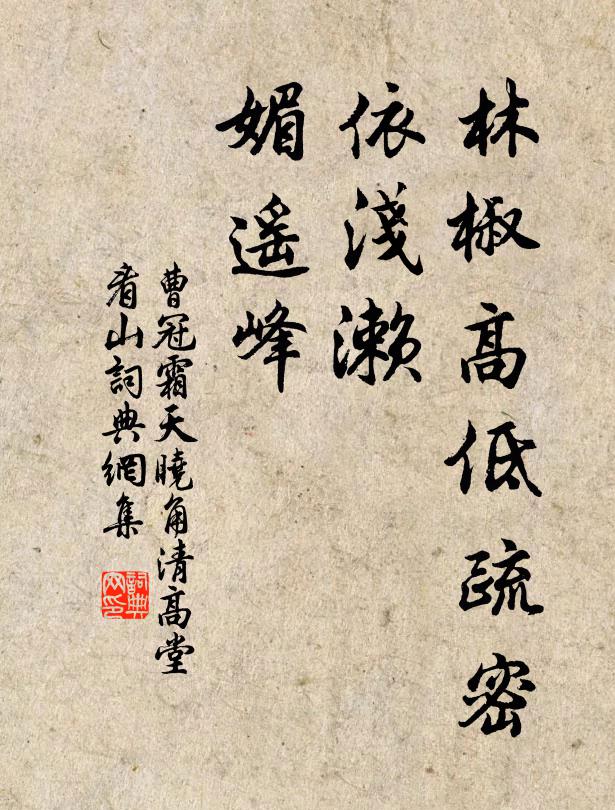 林椒高低疏密
依淺瀨
媚遙峰
曹冠霜天曉角清高堂
看山詞典網集
詞典
网印